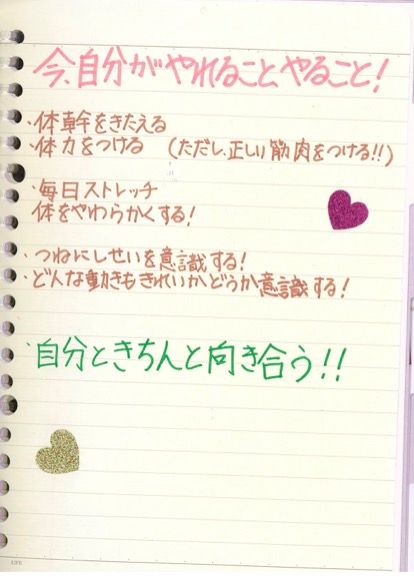 今、自分がやれること、やること!
・体幹をきたえる
・体力をつける (ただし、正しい筋肉をつける!!)
・毎日ストレッチ
体をやわらかくする!
・つねにしせいを意識する!
・どんな動きもきれいかどうか意識する!
・自分ときちんと向き合う!!
LIFE